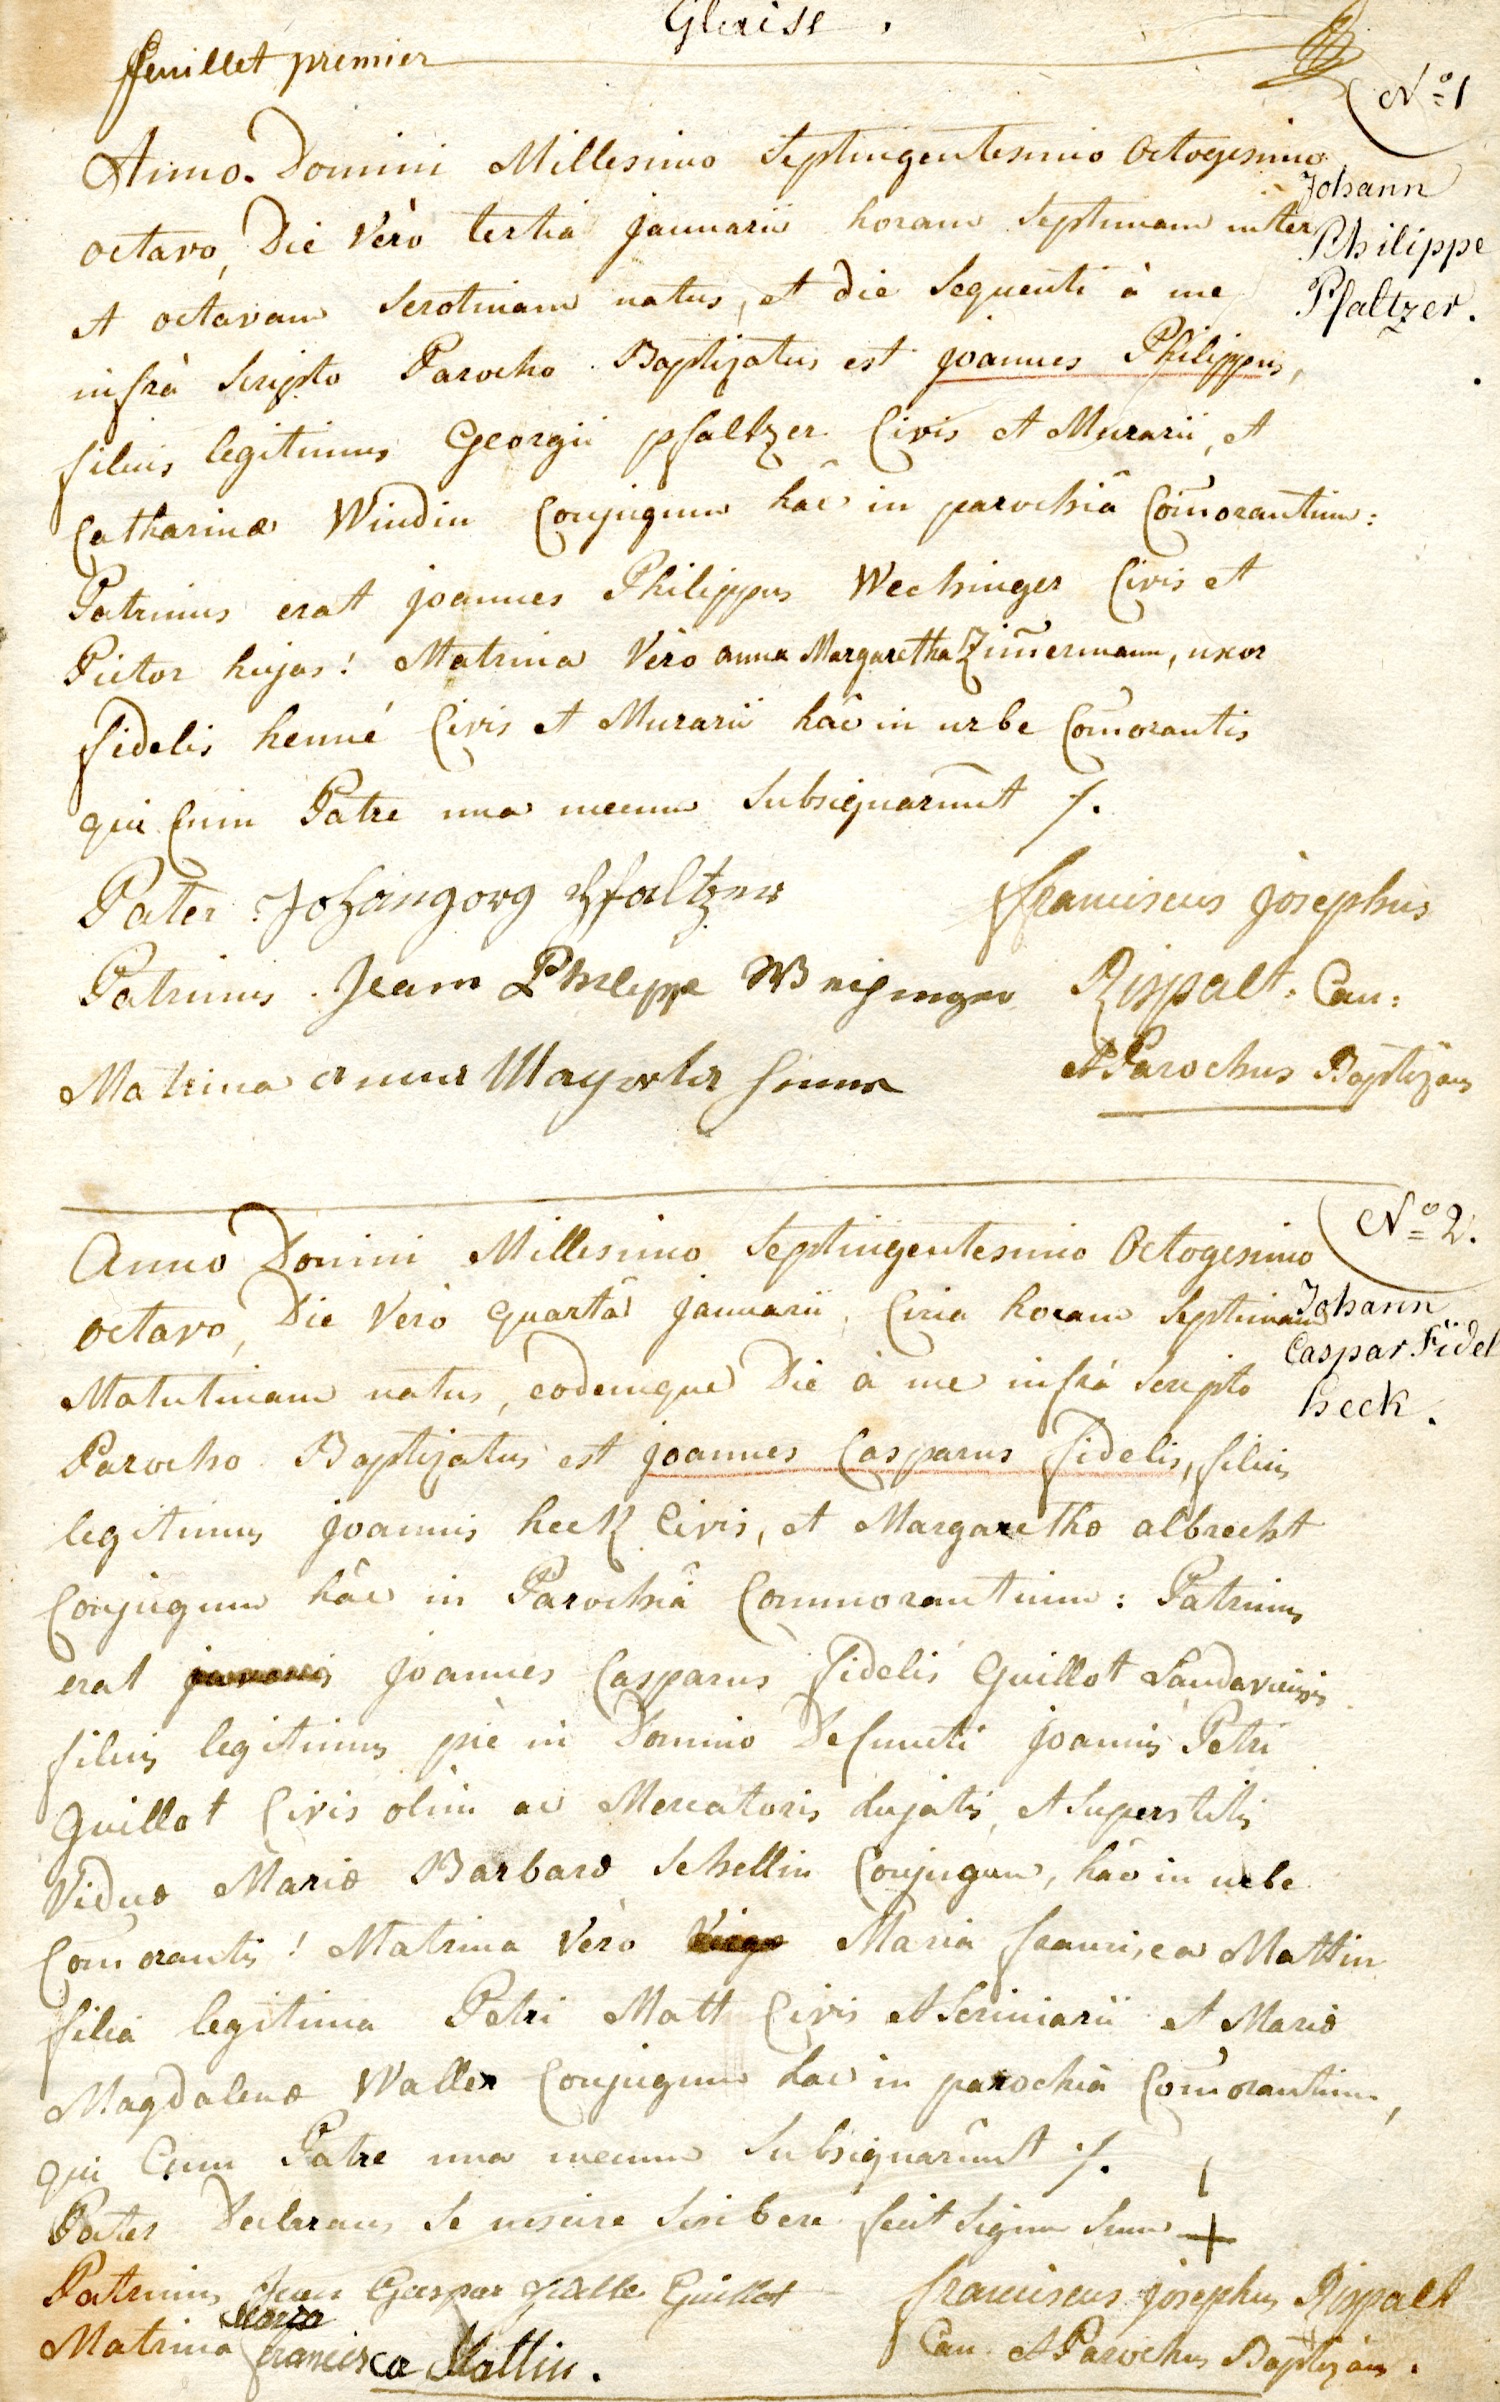 Glaise.
ffeuillet premier
No 1
Anno Domini Millesimo Septingentesimo Octogesimo
Johann
octavo, Die Verò tertia januarii horam Septimam inter
Philippe
et octavam Serotinam natus, et die Sequenti à me
Pfaltzer.
infrà Scripto Parocho Baptizatus est joannes Philippus,
filius legitimus Georgii pfaltzer Civis et Murarii, et
Catharinæ Windin Conjugum hâc in parochiâ Com̄orantium:
Patrinus erat joannes Philippus Wechinger Civis et
Pictor hujas! Matrina Vèro anna Margaretha Zim̄ermann, uxor
fidelis henné Civis et Murarii hâc in urbe Com̄orantis
qui Cum Patre una mecum Subsignarûnt ⁒.
Pater Johangorg Pfaltzer
franciscus josephus
Patrinus Jean Philippe
Rispalt. Can:
Matrina
et Parochus Baptizans
No 2.
Anno Domini Millesimo Septingentesimo Octogesimo
octavo, Die Verò quartâ januarii Circa horam Septimam
Johann
Caspar Fidel
Matutinam natus, eodemque Die à me infrà Scripto
heck.
Parocho Baptizatus est joannes Casparus fidelis, filius
legitimus joannis heck Civis, et Margarethæ albrecht
Conjugum hâc in Parochiâ Commorantium: Patrinus
erat joannes Casparus fidelis Guillot Landaviensis
filius legitimus piè in Domino Defuncti joannis Petri
Guillot Civis olim ac Mercatoris hujatis, et Superstitis
Viduæ Mariæ Barbaræ Schellin Conjugum, hâc in urbe
Com̄orantis! Matrina Vèro Maria francisca Mattin
filia legitima Petri Matt Civis et Scriniarii et Mariæ
Magdalenæ Waller Conjugum hac in parochiâ Com̄orantium,
qui Cum Patre una mecum Subsignarûnt ⁒.
Pater Declarans Se nescire Scribere fecit Signum Suum +
Patrinus Jean Gaspar Guillot
franciscus josephus Rispalt
Maria
Matrina francisca Mattin.
Can. et Parochus Baptizans.